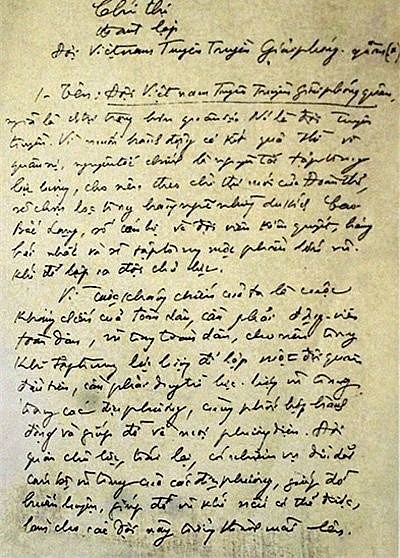 Chỉ thị
thành lập
Đội Việt nam Tuyên Truyền Giải phóng quân
1- Tên: Đội Việt nam Tuyên Truyền Giải phóng quân,
nghĩa là chính trị trọng hơn quân sự. Nó là đội tuyên
truyền. Vì muốn hành động có kết quả thì về
quân sự, nguyên tắc chính là nguyên tắc tập trung
lực lượng, cho nên theo chỉ thị mới của Đoàn thể,
sẽ chọn lọc trong hàng ngũ những du kích Cao
Bắc Lạng, số cán bộ và đội viên kiên quyết, hăng
hái nhất và sẽ tập trung một phần lớn vũ
khí để lập ra đội chủ lực.
Vì cuộc kháng chiến của ta là cuộc
kháng chiến của toàn dân, cần phải động viên
toàn dân, vũ trang toàn dân, cho nên trong
khi tập trung lực lượng để lập một đội quân
đầu tiên, cần phải duy trì lực lượng vũ trang
trong các địa phương, cùng phối hợp hành
động và giúp đỡ về mọi phương diện. Đội
quân chủ lực, trái lại, có nhiệm vụ dìu dắt
cán bộ vũ trang của các địa phương, giúp đỡ
huấn luyện, giúp đỡ vũ khí nếu có thể được,
làm cho các đội này trưởng thành mãi lên.